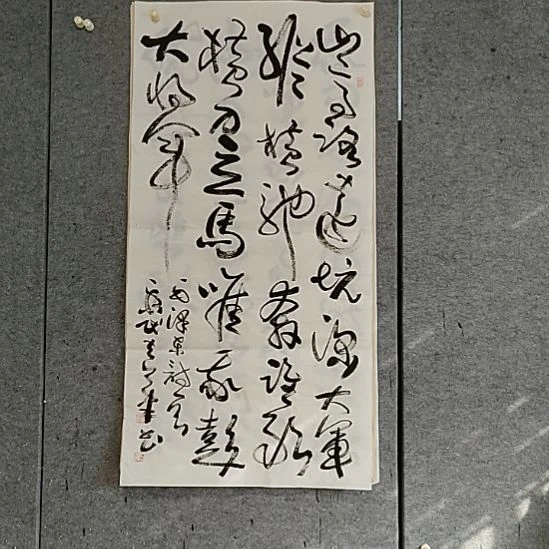 山高路遠坑深大軍
縱橫馳奔誰敢
橫刀立馬唯我彭
大將軍
毛澤東詩